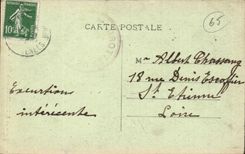 CARTE POSTALE
65
10
Mr Albert Chassang
18 rue Denis Escoffier
St Etienne
Loire
Excursions